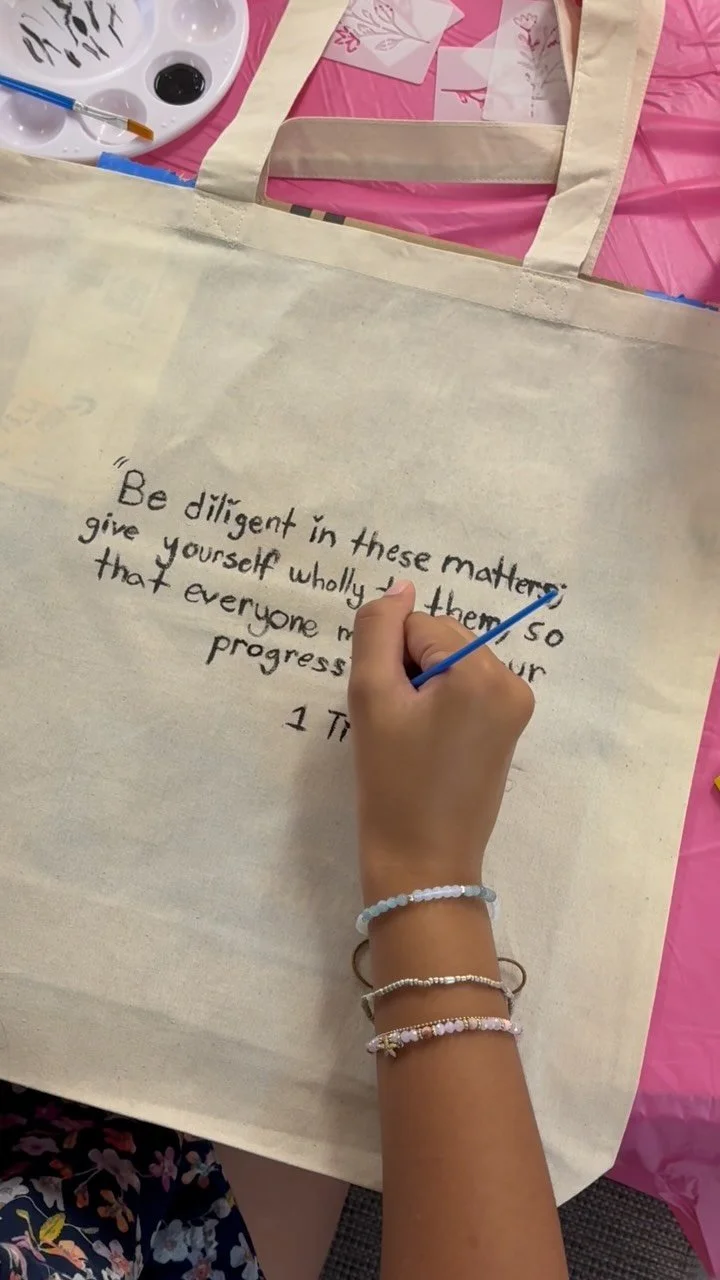 "Be diligent in these matters;
give yourself wholly them, so
that everyone
progress
1